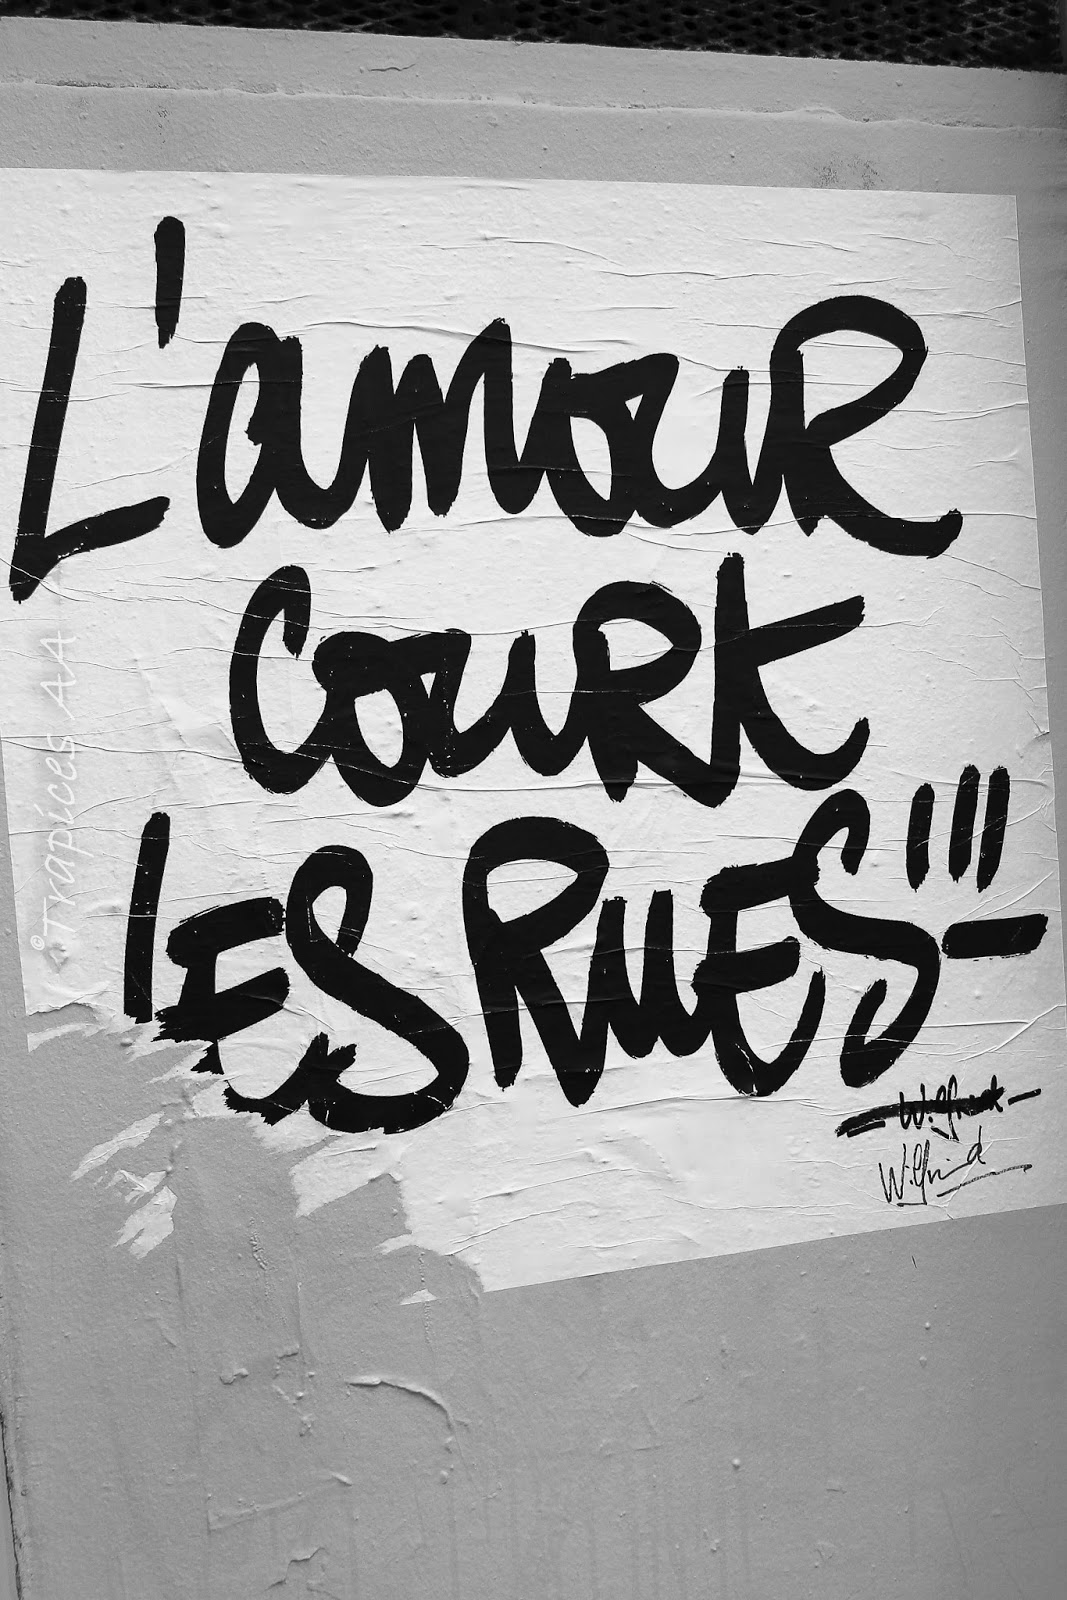 L'amour
court
les rues!!!
Wilfrid
Wilfrid
©Trapíces AA